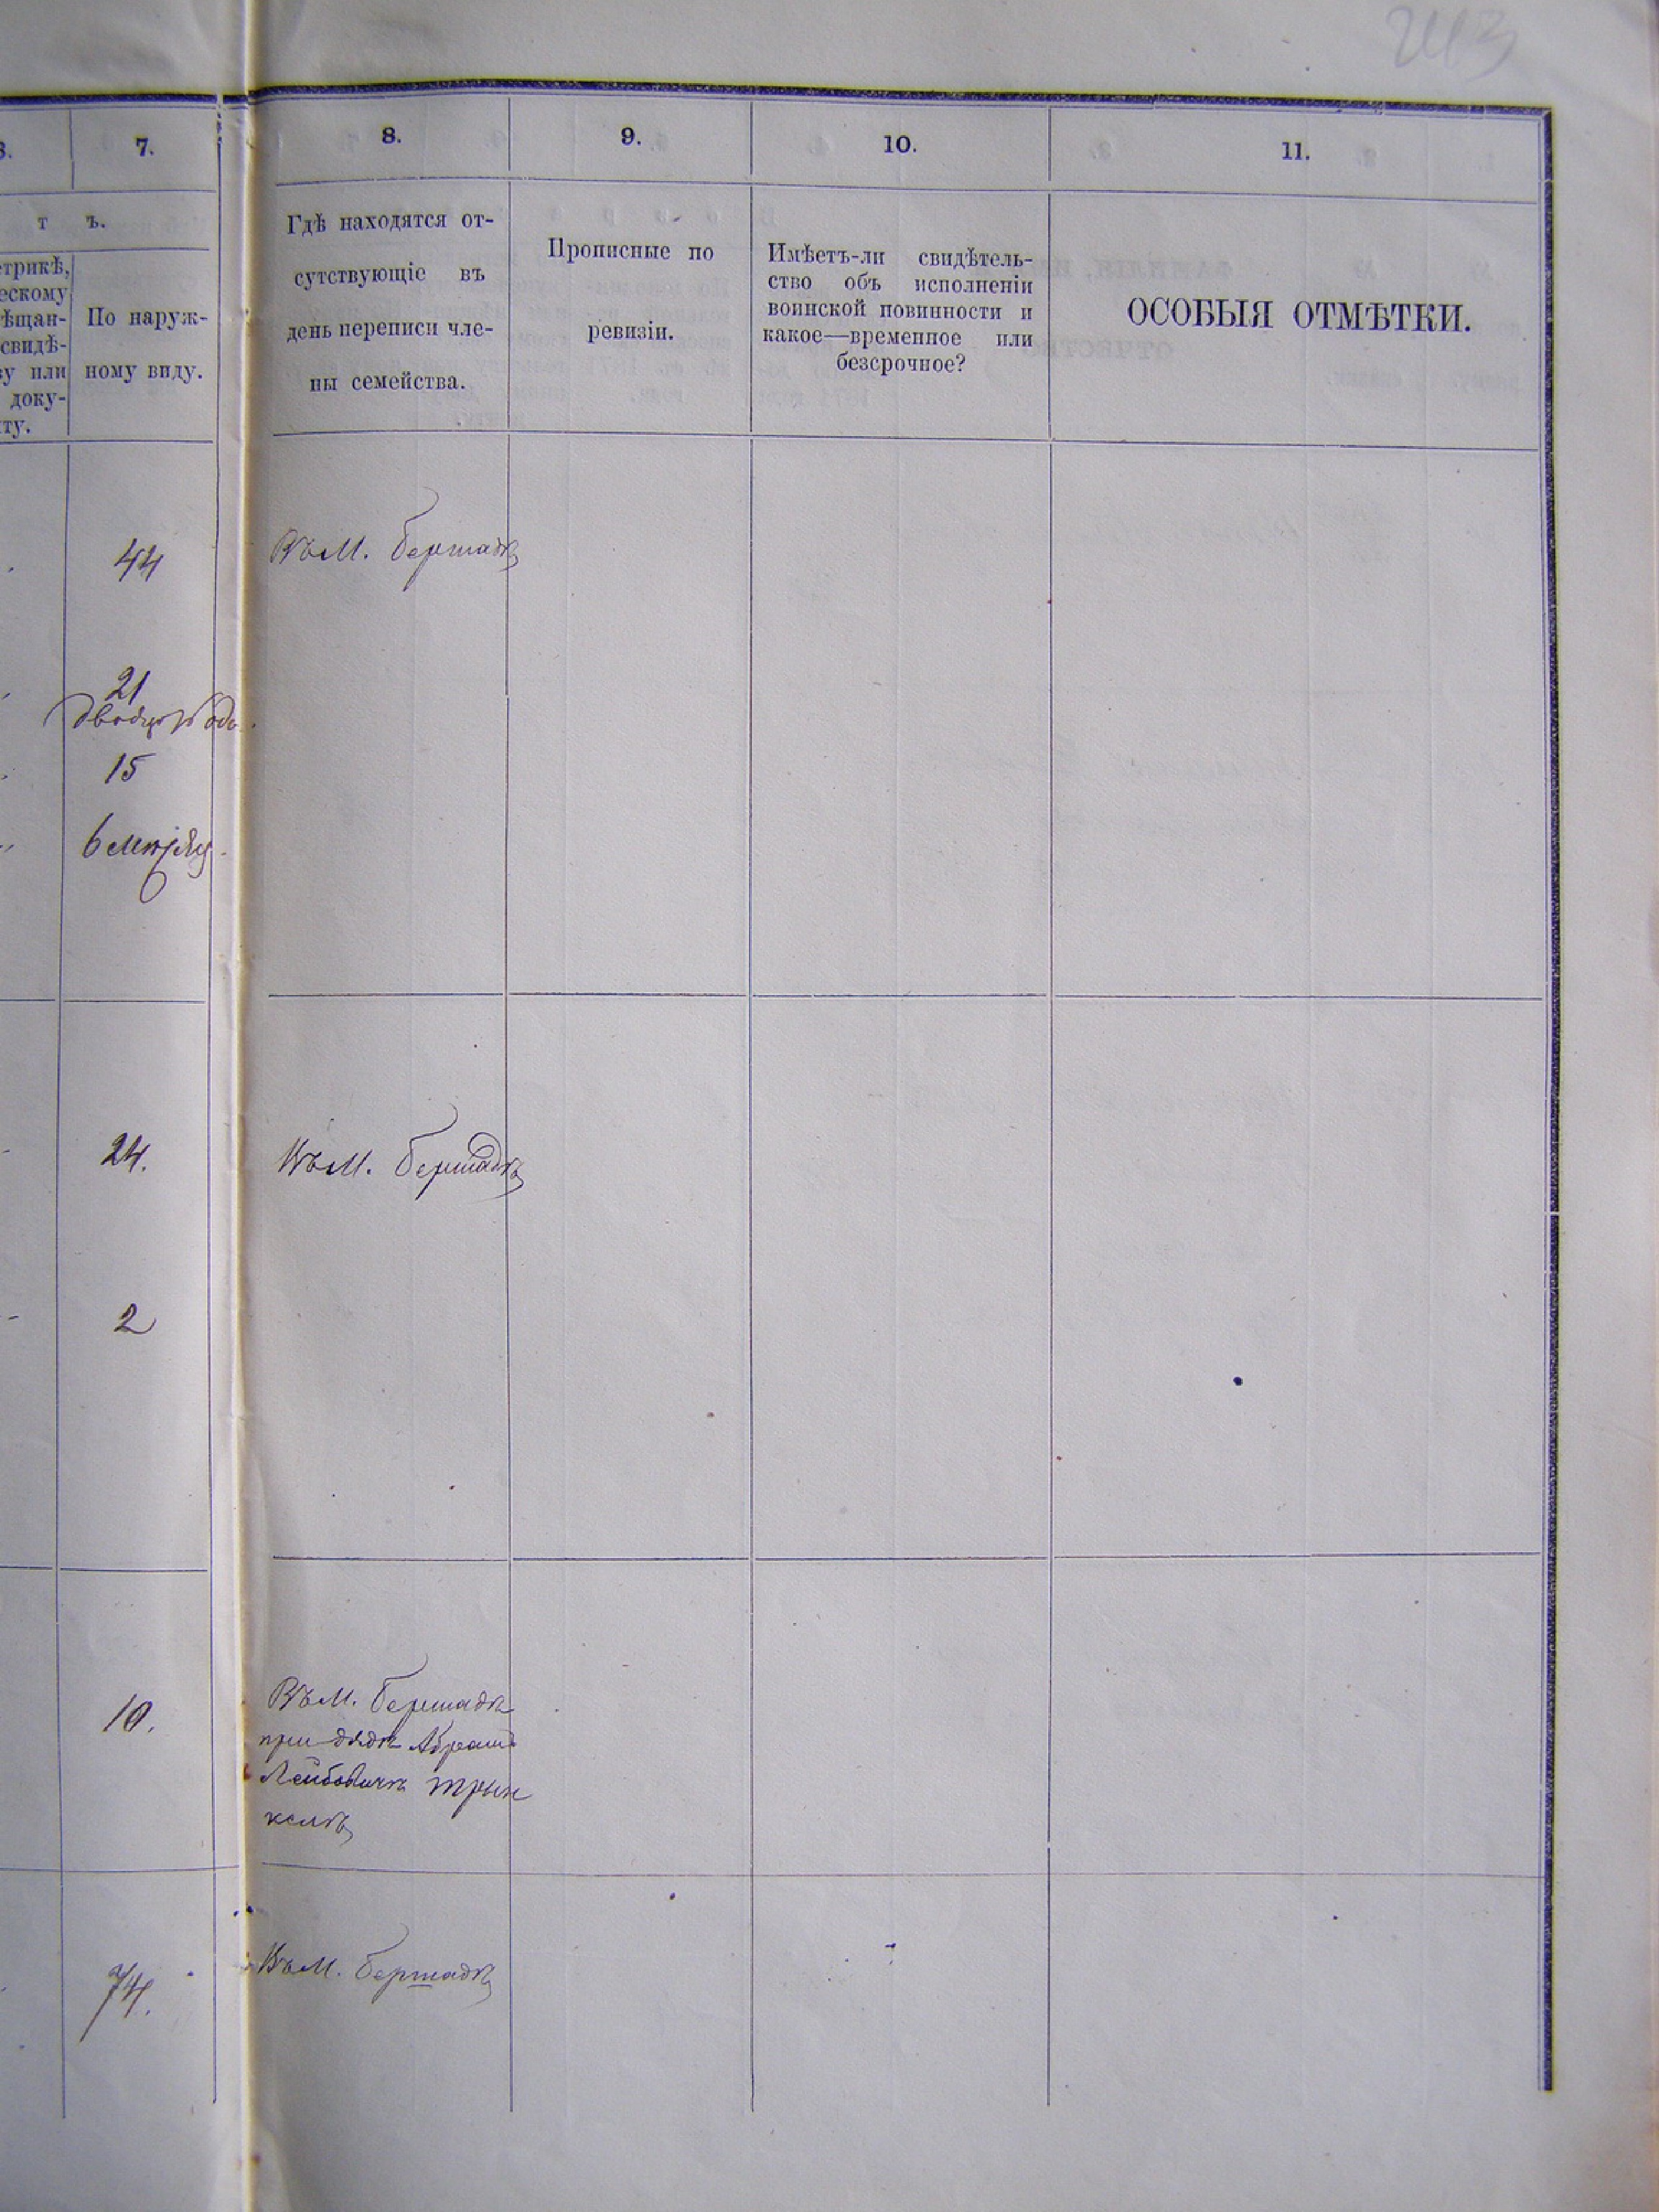 243
7.
8.
9.
10.
11.
т ъ.
По наруж-
ному виду.
Гдѣ находятся от-
сутствующіе въ
день переписи чле-
ны семейства.
Прописные по
ревизіи.
Имѣетъ-ли свидѣтель-
ство объ исполненіи
воинской повинности и
какое—временное или
безсрочное?
ОСОБЫЯ ОТМѢТКИ.
етрикѣ,
ескому
ѣщан-
свидѣ-
ву или
доку-
ту.
44
Въ М. Бершадѣ
21
15
6 мѣсяц
24.
Въ М. Бершадѣ
2
10.
Въ М. Бершадѣ
при дядѣ Абрамѣ
Лейбовичѣ Трин
келѣ
74.
Въ М. Бершадѣ